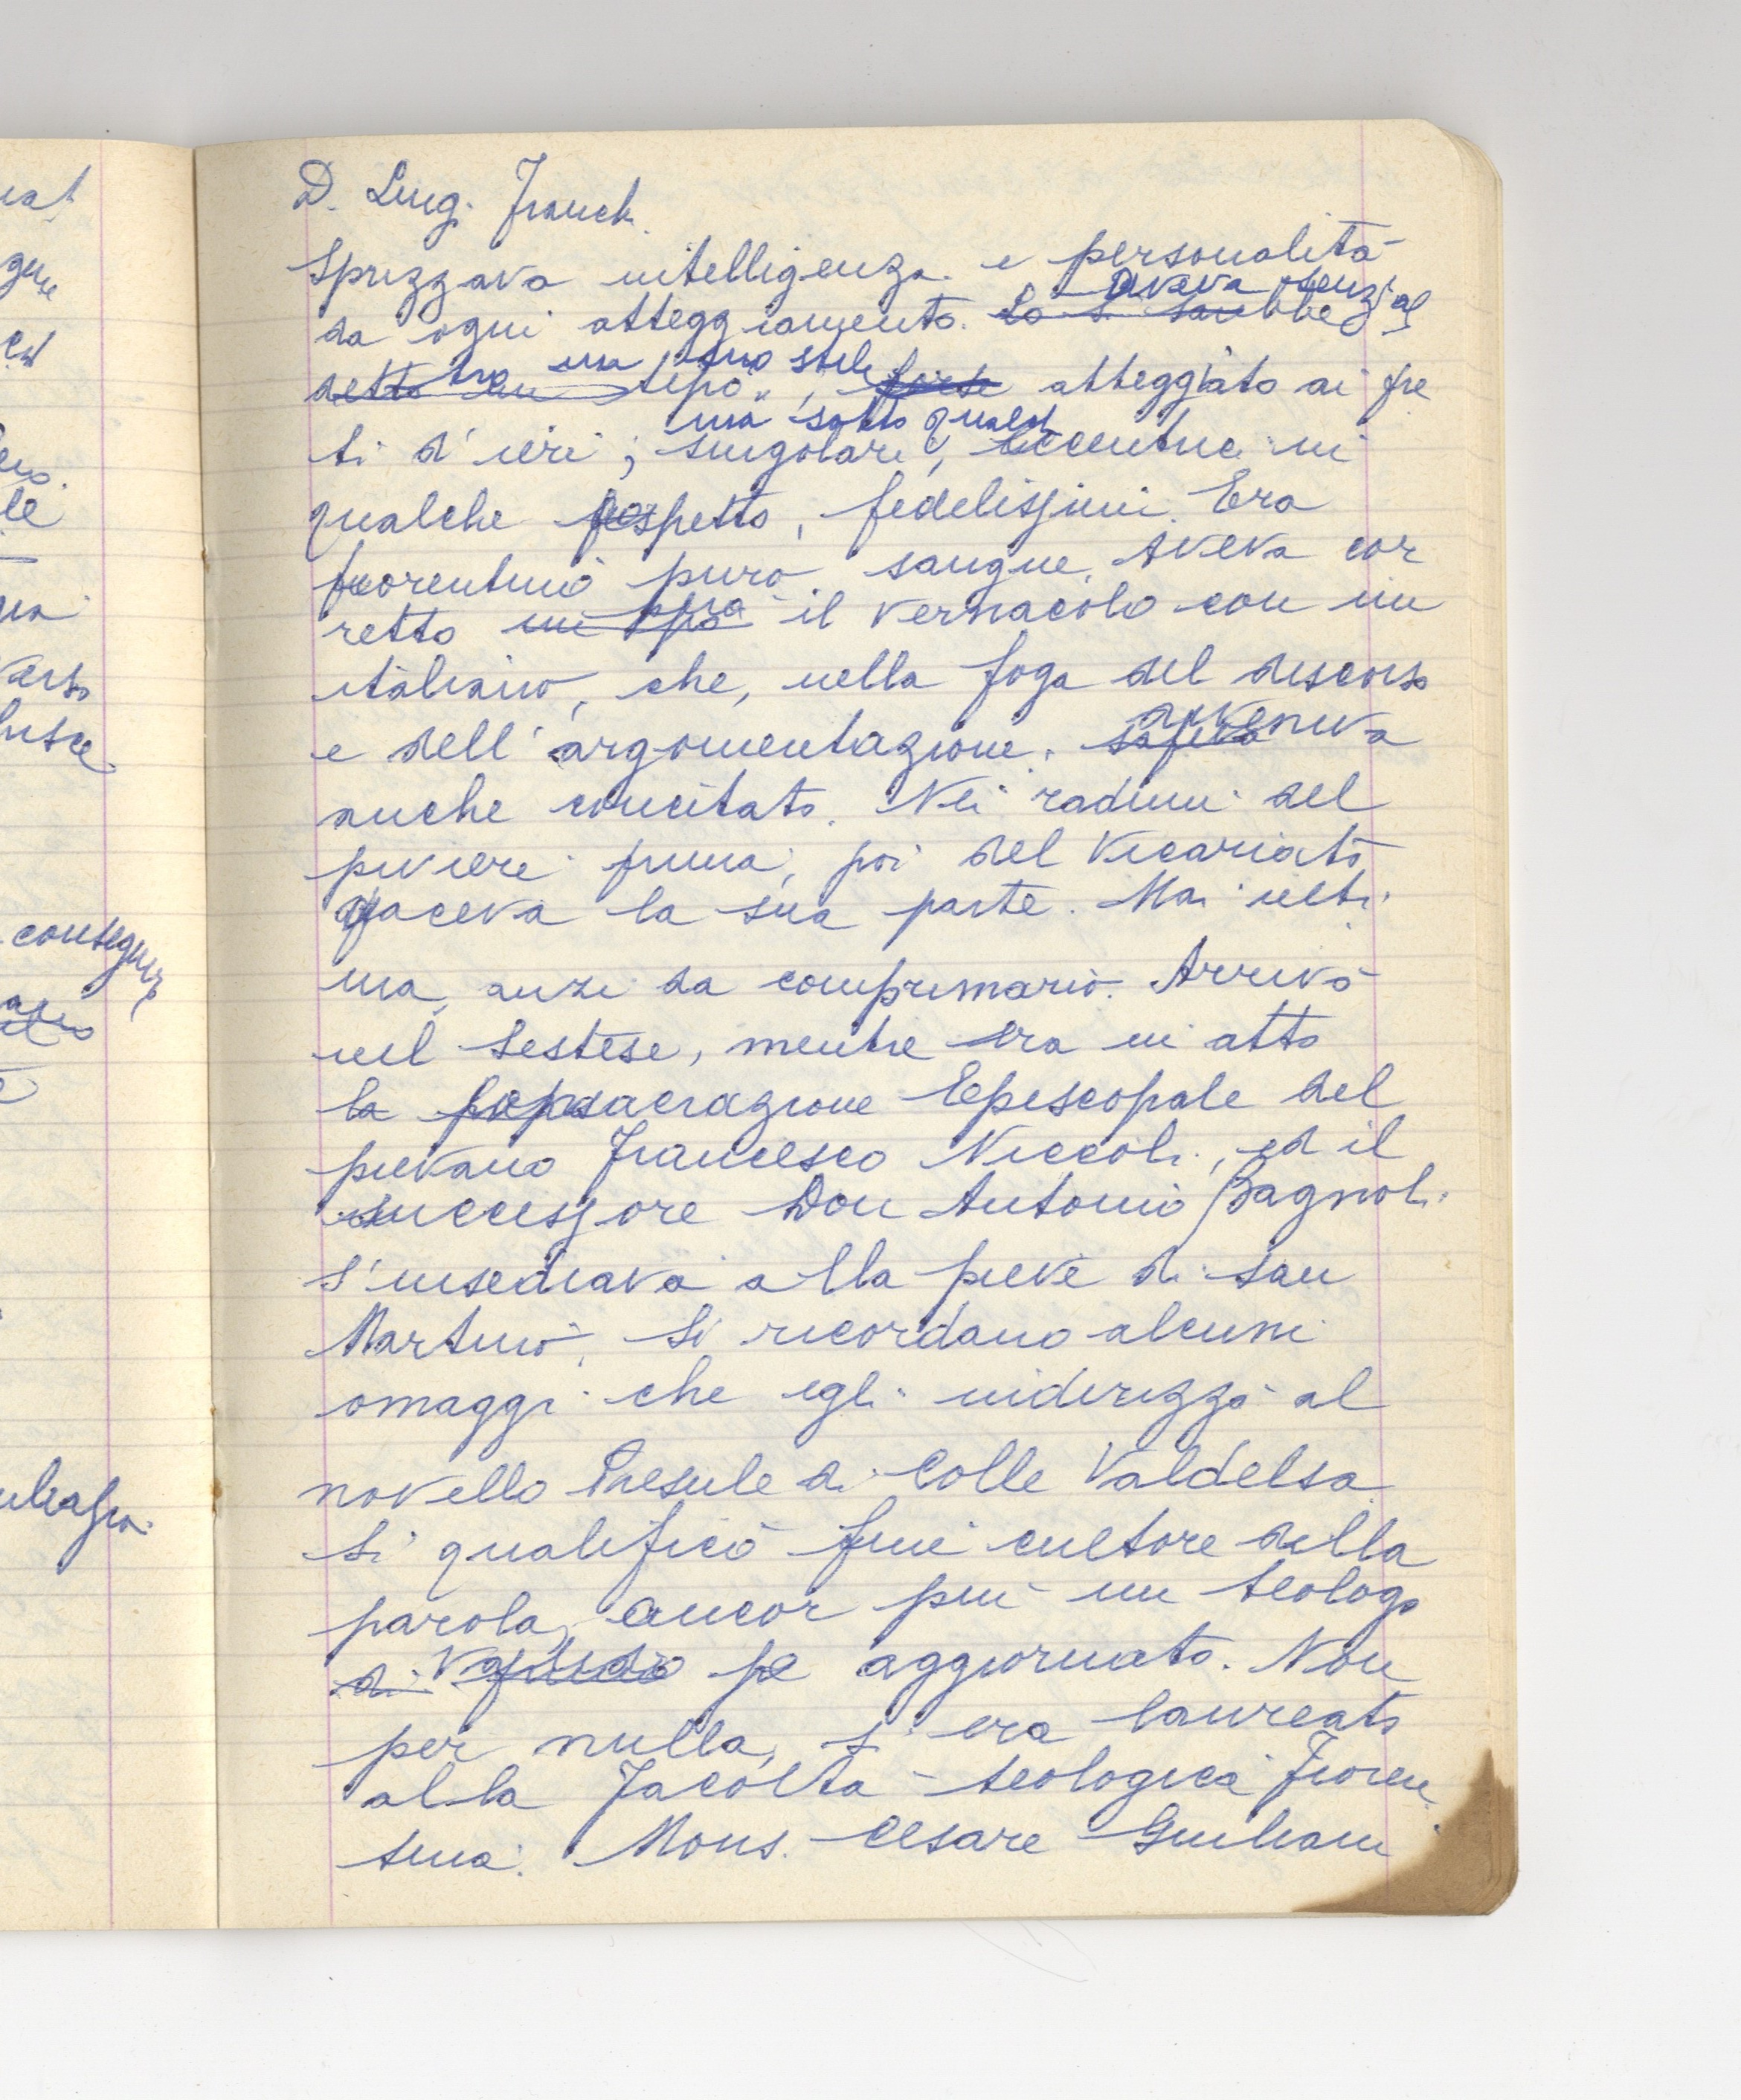 nat
gere
le
na
verso
consegnez
D. Luigi Franch.
Sprizzava intelligenza e personalità
aveva senz'al
da ogni atteggiamento. Lo si sarebbe
tro un suo stile
detto un tipo", forse atteggiato ai pre
ma sotto qualch
ti d'ieri; singolari, eccentrici in
qualche aspetto, fedelissimi. Era
fiorentino puro sangue. Aveva cor
retto il vernacolo con un
italiano, che, nella foga del discorso
avveniva
e dell'argomentazione,
anche concitato. Nei raduni del
piviere prima, poi del Vicariato
faceva la sua parte. Mai ulti
ma, anzi da comprimario. Arrivò
nel Sestese, mentre era in atto
la consacrazione Episcopale del
pievano Francesco Niccoli, ed il
successore Don Antonio Bagnoli
s'insediava alla pieve di San
Martino. Si ricordano alcuni
omaggi che egli indirizzò al
novello Presule di Colle Valdelsa.
Si qualificò fine cultore della
parola, ancor più un teologo
di aggiornato. Non
per nulla, s'era laureato
alla Facoltà teologica Fioren
tina. Mons. Cesare Giuliani